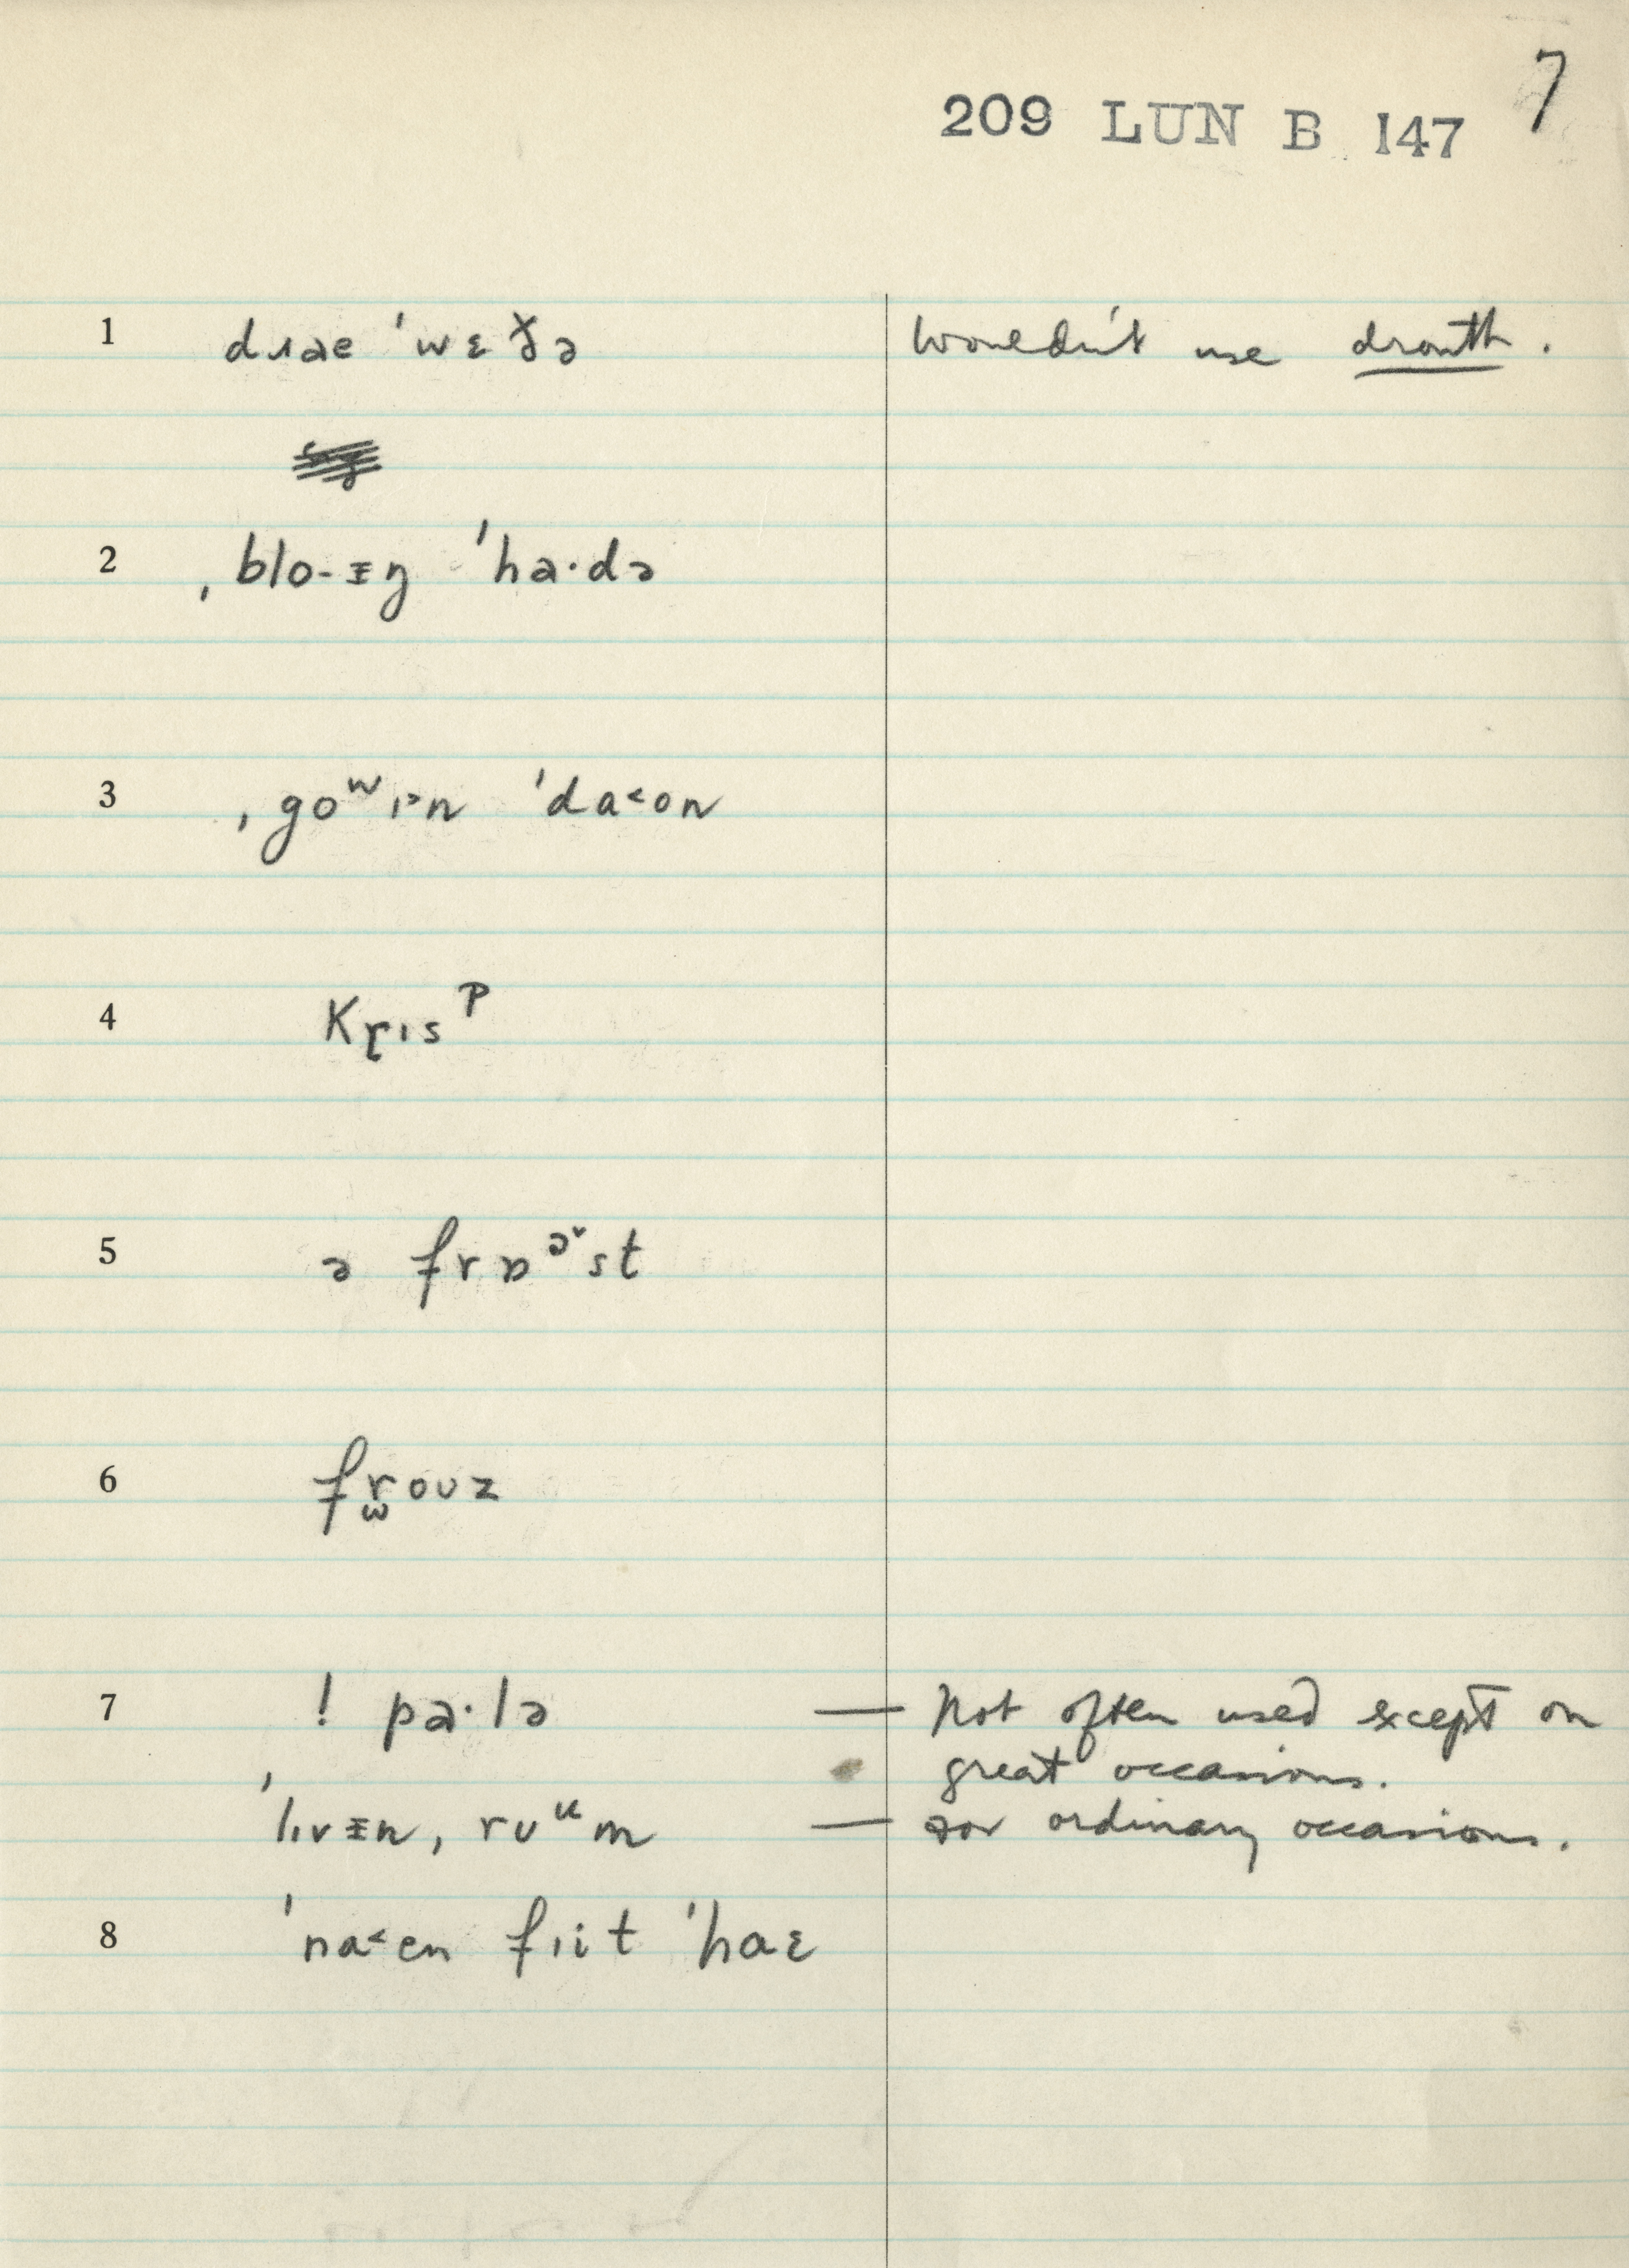 209 LUN B 147 7
1 dɹae ˈwɛðə Wouldn't use drouth.
2 ˌblo-ɪŋ ˈha·də
3 ˌgoʷɪ>n ˈda<on
4 Kɽɪsᵖ
5 ə frɒᵊ˞st
6 frouz
7 ! pa·lə — Not often used except on
great occasions.
ˈlɪvɪn, ruᵘm — For ordinary occasions.
8 ˈna<en fɪit ˈhaɛ